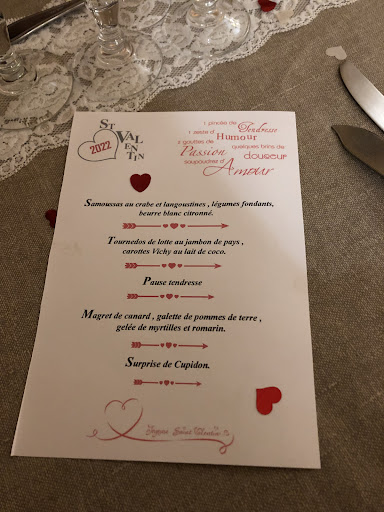 St
VAL
EN
TIN
2022
1 pincée de Tendresse
1 zeste d' Humour
Passion quelques brins de
saupoudrez d' douceur
Amour
Samoussas au crabe et langoustines , légumes fondants,
beurre blanc citronné.
Tournedos de lotte au jambon de pays ,
carottes Vichy au lait de coco.
Pause tendresse
Magret de canard , galette de pommes de terre ,
gelée de myrtilles et romarin.
Surprise de Cupidon.
Joyeuse Saint Valentin